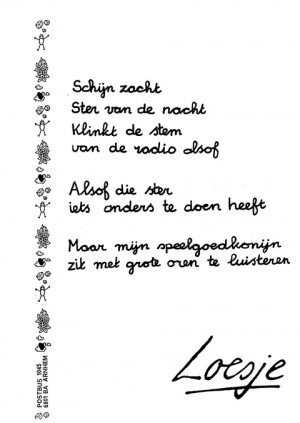 Schijn zacht
Ster van de nacht
Klinkt de stem
van de radio alsof
Alsof die ster
iets anders te doen heeft
Maar mijn speelgoedkonijn
zit met grote oren te luisteren
Loesje
POSTBUS 1045
6801 BA ARNHEM